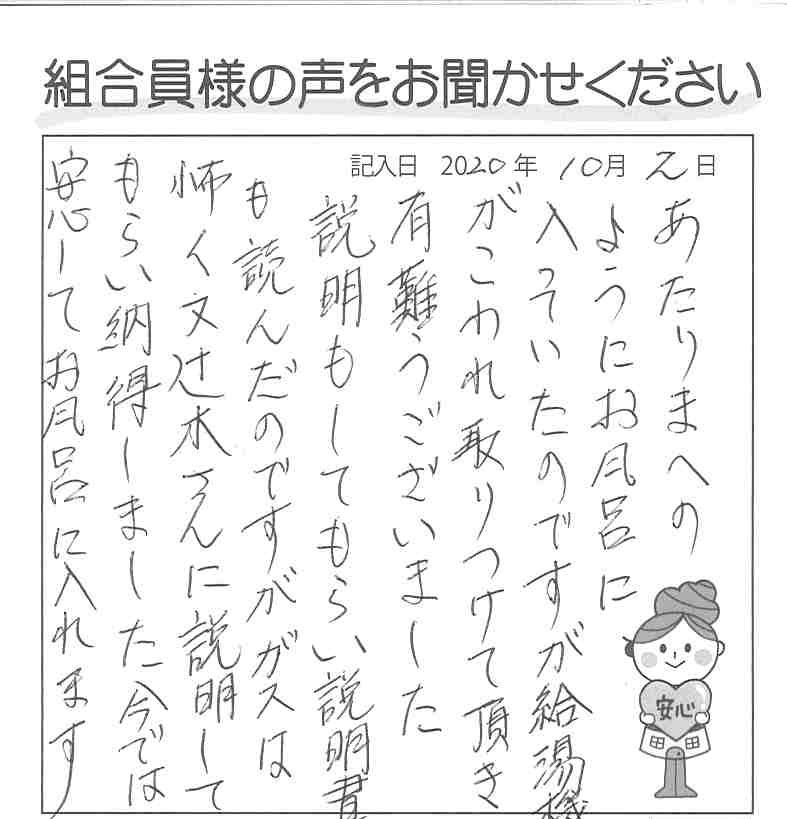 組合員様の声をお聞かせください
記入日 2020年 10月 2日
あたりまへの
ようにお風呂に
入っていたのですが給湯機
がこわれ取りつけて頂き
有難うございました
説明もしてもらい説明書
も読んだのですがガスは
怖く又辻本さんに説明して
もらい納得しました今では
安心してお風呂に入れます
安心